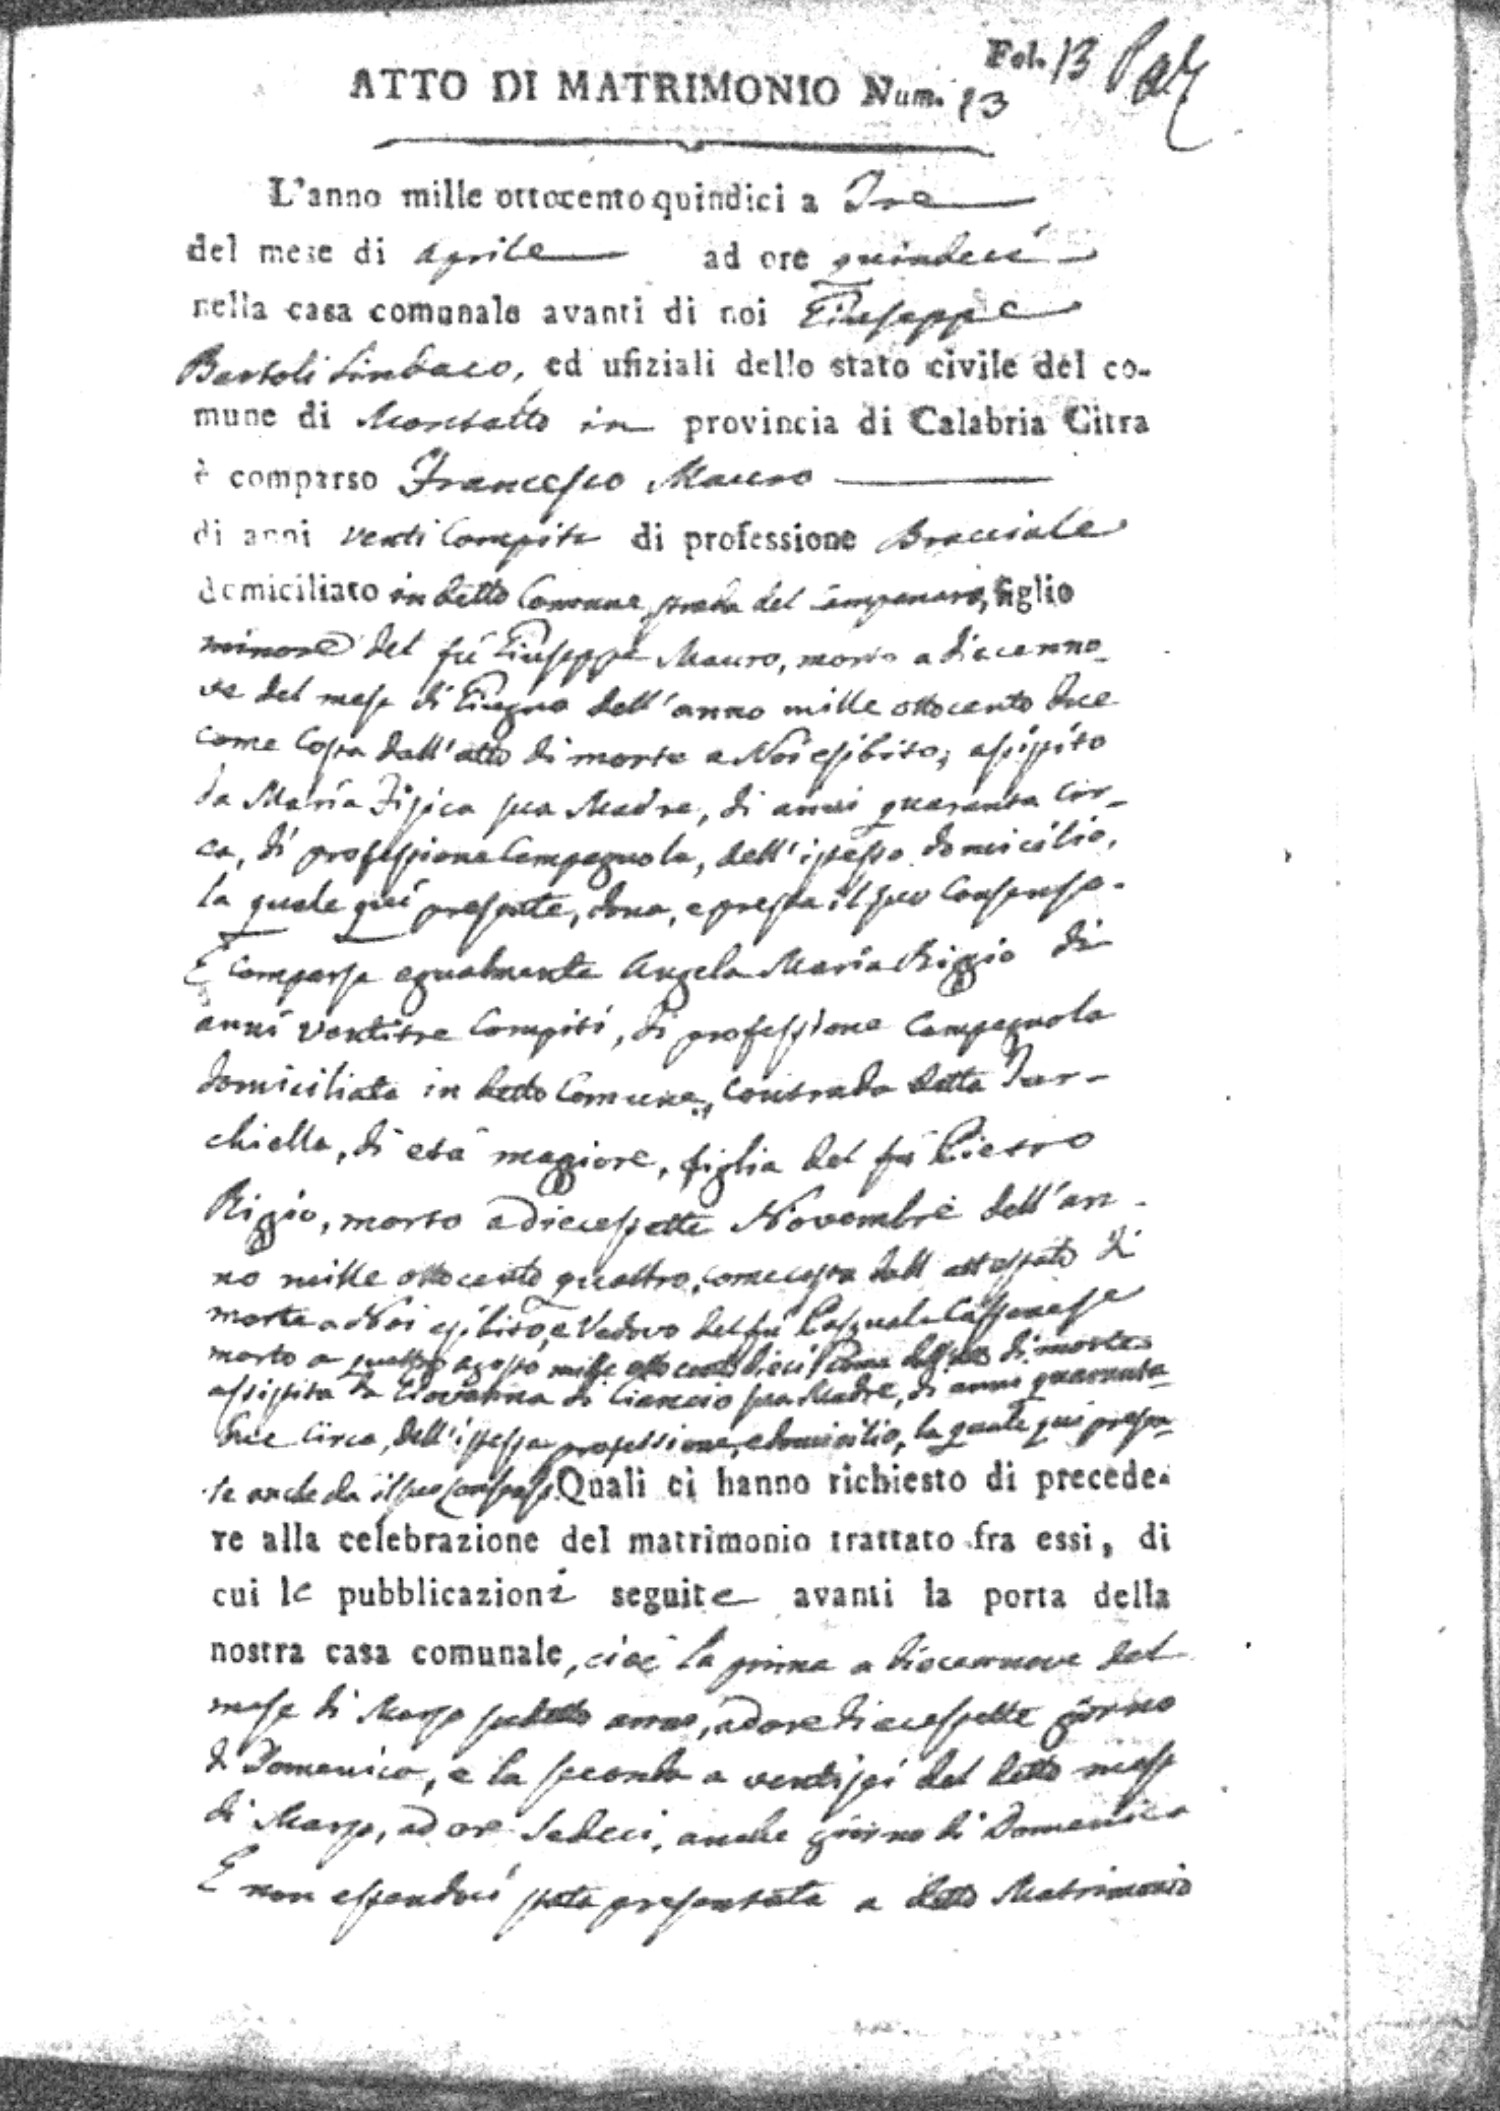 Fol. 13
ATTO DI MATRIMONIO Num. 13
L'anno mille ottocento quindici a Tre
del mese di Aprile ad ore quindeci
nella casa comunale avanti di noi Giuseppe
Bartoli Sindaco, ed ufiziali dello stato civile del co-
mune di Montalto in provincia di Calabria Citra
è comparso Francesco Mauro
di anni venti Compiti di professione Bracciale
domiciliato in detto Comune, strada del Campanaro, figlio
minore del fù Giuseppe Mauro, morto a diecenno-
ve del mese di Giugno dell'anno mille ottocento due
come Costa dall'atto di morte a Noi esibito; assistito
da Maria Fisica sua Madre, di anni quaranta Cir-
ca, di professione Campagnola, dell'istesso domicilio,
la quale quì presente, dona, e presta il suo Consenso.
E comparsa egualmente Angela Maria Riggio di
anni ventitre Compiti, di professione Campagnola
domiciliata in detto Comune, Contrada detta Tur-
chiella, di età maggiore, figlia del fù Pietro
Riggio, morto a diecessette Novembre dell'an-
no mille ottocento quattro, come costa dall'attestato di
morte a Noi esibito, e Vedova del fù Pasquale Cassanese
morto a quattro agosto mille otto cento dieci Come dall'atto di morte
assistita da Giovanna di Ciancio sua Madre, di anni quaranta-
due Circa, dell'istessa professione, e domicilio, la quale qui presen-
te anche da il suo consenso. Quali ci hanno richiesto di precede-
re alla celebrazione del matrimonio trattato fra essi, di
cui le pubblicazioni seguite avanti la porta della
nostra casa comunale, cioè la prima a diecennove del
mese di Marzo sudetto anno, ad ore diecessette giorno
di Domenica, e la seconda a ventisei del detto mese
di Marzo, ad ore Sedeci, anche giorno di Domenica
E non essendoci stata presentata a detto Matrimonio